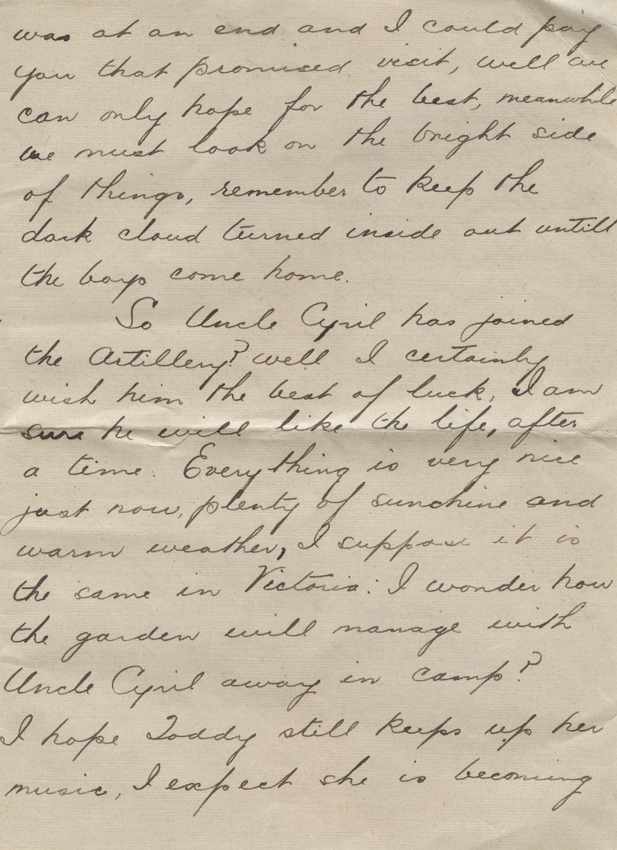 was at an end and I could pay
you that promised visit, well we
can only hope for the best, meanwhile
we must look on the bright side
of things, remember to keep the
dark cloud turned inside out untill
the boys come home.
So Uncle Cyril has joined
the Artillery? well I certainly
wish him the best of luck, I am
sure he will like the life, after
a time. Everything is very nice
just now, plenty of sunshine and
warm weather, I suppose it is
the same in Victoria: I wonder how
the garden will manage with
Uncle Cyril away in camp?
I hope Toddy still keeps up her
music, I expect she is becoming